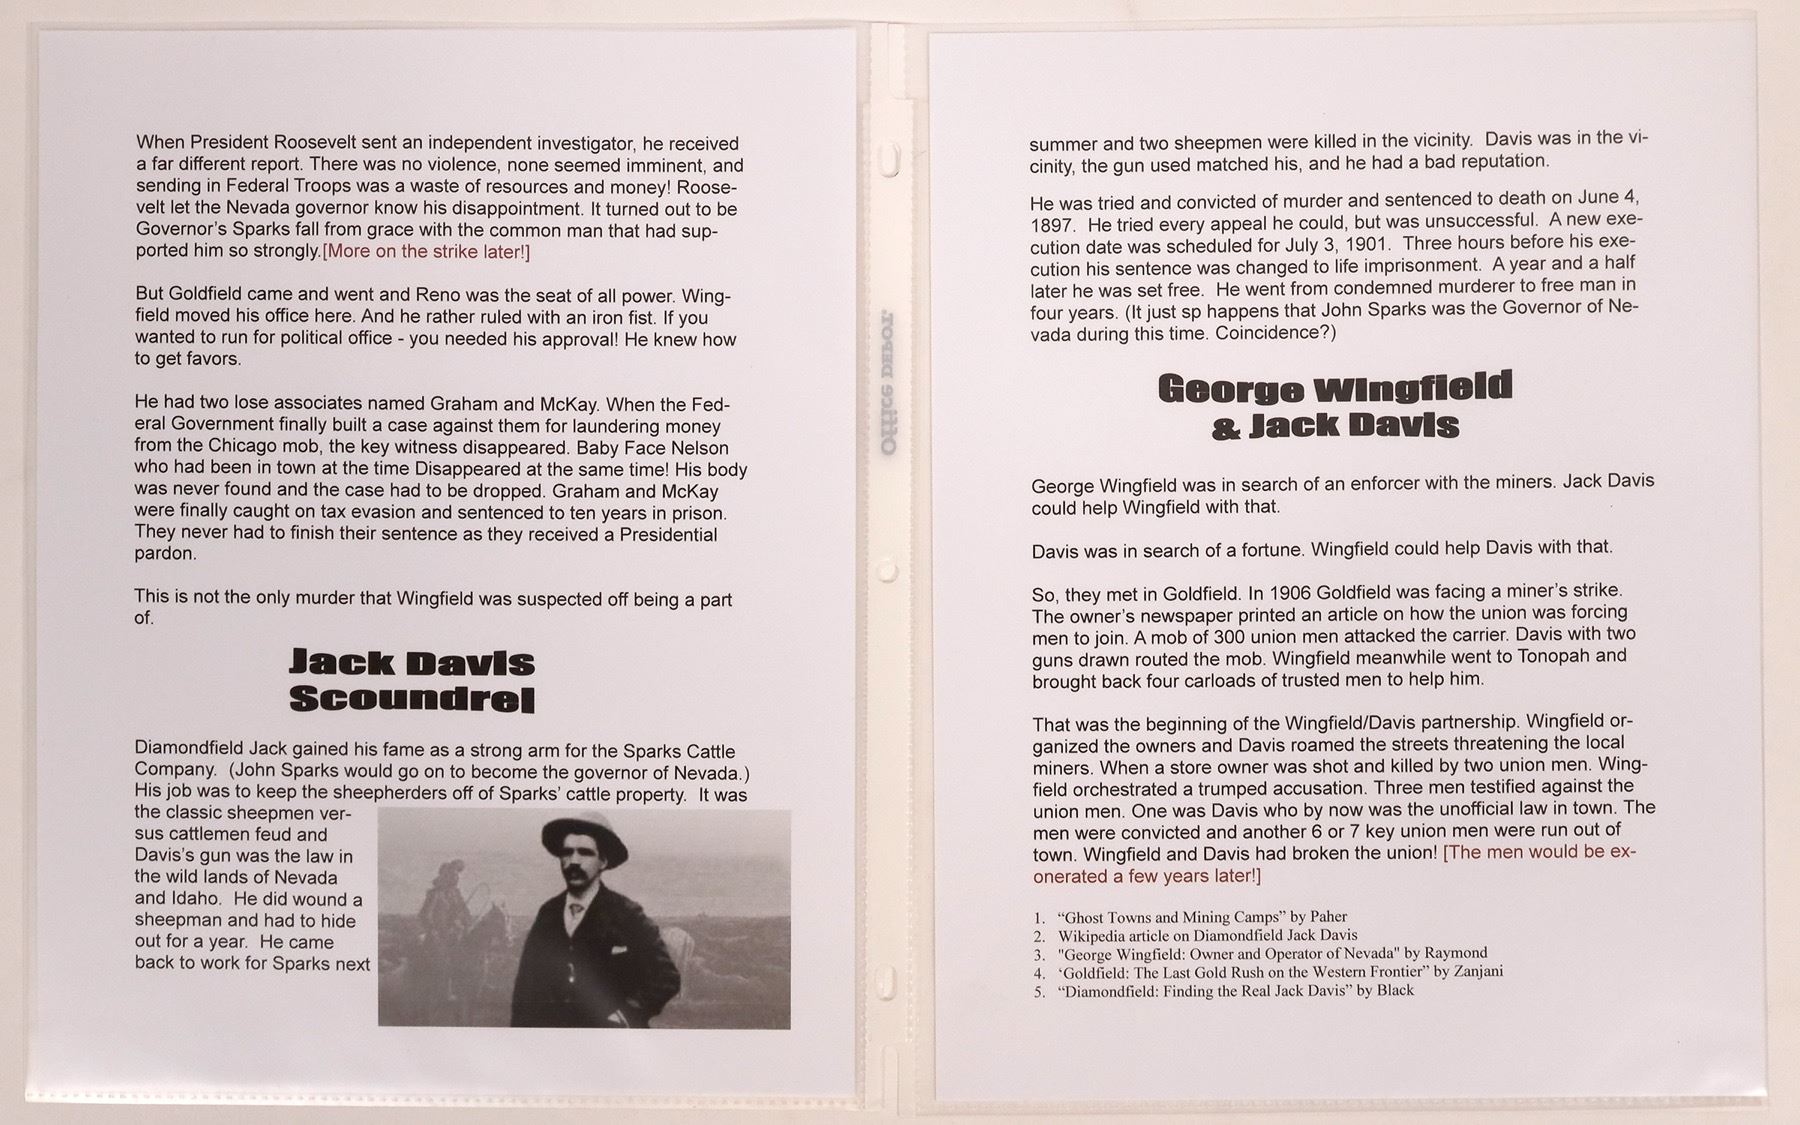 When President Roosevelt sent an independent investigator, he received
a far different report. There was no violence, none seemed imminent, and
sending in Federal Troops was a waste of resources and money! Roose-
velt let the Nevada governor know his disappointment. It turned out to be
Governor's Sparks fall from grace with the common man that had sup-
ported him so strongly.[More on the strike later!]
But Goldfield came and went and Reno was the seat of all power. Wing-
field moved his office here. And he rather ruled with an iron fist. If you
wanted to run for political office - you needed his approval! He knew how
to get favors.
He had two lose associates named Graham and McKay. When the Fed-
eral Government finally built a case against them for laundering money
from the Chicago mob, the key witness disappeared. Baby Face Nelson
who had been in town at the time Disappeared at the same time! His body
was never found and the case had to be dropped. Graham and McKay
were finally caught on tax evasion and sentenced to ten years in prison.
They never had to finish their sentence as they received a Presidential
pardon.
This is not the only murder that Wingfield was suspected off being a part
of.
Jack Davis
Scoundrel
Diamondfield Jack gained his fame as a strong arm for the Sparks Cattle
Company. (John Sparks would go on to become the governor of Nevada.)
His job was to keep the sheepherders off of Sparks' cattle property. It was
the classic sheepmen ver-
sus cattlemen feud and
Davis's gun was the law in
the wild lands of Nevada
and Idaho. He did wound a
sheepman and had to hide
out for a year. He came
back to work for Sparks next
Office DEPOT.
summer and two sheepmen were killed in the vicinity. Davis was in the vi-
cinity, the gun used matched his, and he had a bad reputation.
He was tried and convicted of murder and sentenced to death on June 4,
1897. He tried every appeal he could, but was unsuccessful. A new exe-
cution date was scheduled for July 3, 1901. Three hours before his exe-
cution his sentence was changed to life imprisonment. A year and a half
later he was set free. He went from condemned murderer to free man in
four years. (It just sp happens that John Sparks was the Governor of Ne-
vada during this time. Coincidence?)
George Wingfield
& Jack Davis
George Wingfield was in search of an enforcer with the miners. Jack Davis
could help Wingfield with that.
Davis was in search of a fortune. Wingfield could help Davis with that.
So, they met in Goldfield. In 1906 Goldfield was facing a miner's strike.
The owner's newspaper printed an article on how the union was forcing
men to join. A mob of 300 union men attacked the carrier. Davis with two
guns drawn routed the mob. Wingfield meanwhile went to Tonopah and
brought back four carloads of trusted men to help him.
That was the beginning of the Wingfield/Davis partnership. Wingfield or-
ganized the owners and Davis roamed the streets threatening the local
miners. When a store owner was shot and killed by two union men. Wing-
field orchestrated a trumped accusation. Three men testified against the
union men. One was Davis who by now was the unofficial law in town. The
men were convicted and another 6 or 7 key union men were run out of
town. Wingfield and Davis had broken the union! [The men would be ex-
onerated a few years later!]
1. “Ghost Towns and Mining Camps” by Paher
2. Wikipedia article on Diamondfield Jack Davis
3. "George Wingfield: Owner and Operator of Nevada" by Raymond
4. ‘Goldfield: The Last Gold Rush on the Western Frontier” by Zanjani
5. “Diamondfield: Finding the Real Jack Davis” by Black